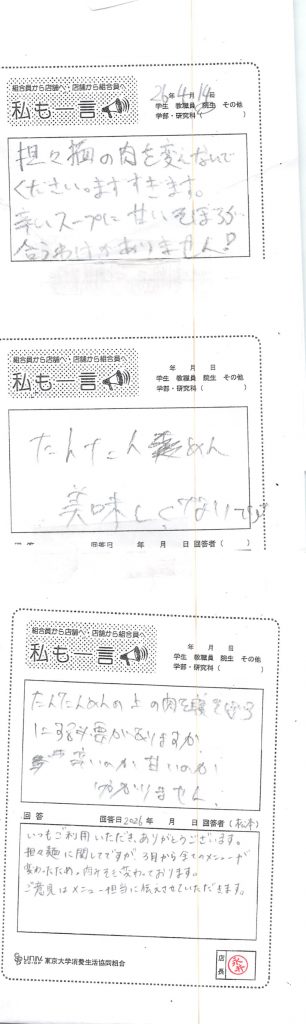 組合員から店舗へ・店舗から組合員へ
私も一言
26年4月14日
学生 教職員 院生 その他
学部・研究科( )
担々麺の肉を変えないで
ください。
辛いスープに甘いそぼろが
合うわけがありません!
組合員から店舗へ・店舗から組合員へ
私も一言
年 月 日
学生 教職員 院生 その他
学部・研究科( )
たんたんめん
美味しくないです
回答日 年 月 日 回答者( )
組合員から店舗へ・店舗から組合員へ
私も一言
年 月 日
学生 教職員 院生 その他
学部・研究科( )
たんたんめんの上の肉を
にする必要がありますか
辛いのか甘いのか
分かりません。
回答 回答日2026年 月 日 回答者( )
いつもご利用いただき、ありがとうございます。
担々麺に関してですが、3月から全てのメニューが
変わったため、肉みそも変わっております。
ご意見はメニュー担当に伝えさせていただきます。
univ. 東京大学消費生活協同組合
店長